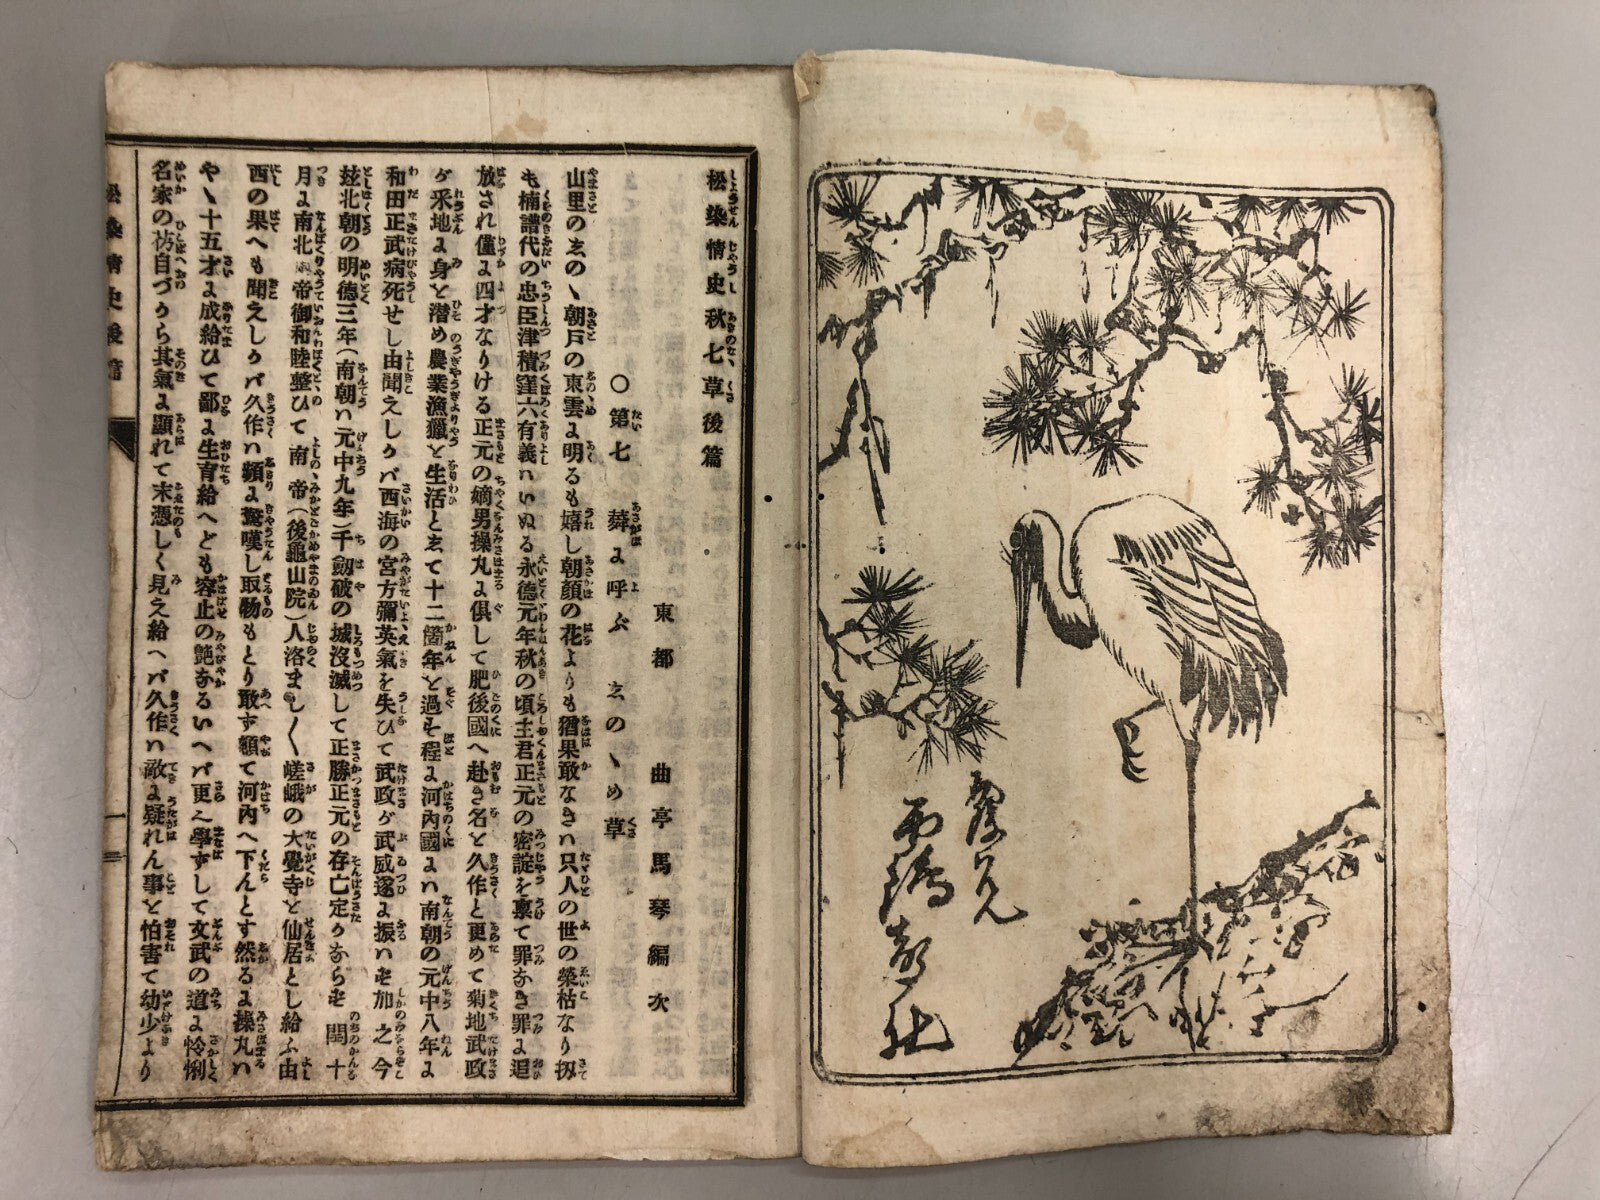 松染情史秋七草後篇
東都 曲亭馬琴編次
○第七 蕣よ呼ぶ 志のゝめ草
山里の志のゝ朝戸の東雲よ明るも嬉し朝顔の花よりも猶果敢なきハ只人の世の榮枯なり扨
も楠譜代の忠臣津積窪六有義ハいぬる永德元年秋の頃主君正元の密諚を禀て罪なき罪よ追
放され僅よ四才なりける正元の嫡男操丸よ倶して肥後國へ赴き名と久作と更めて菊地武政
が采地よ身と潜め農業漁獵と生活として十二箇年と過せ程よ河內國よハ南朝の元中八年よ
和田正武病死せし由聞えしかバ西海の宮方彌英氣を失ひて武政が武威遂よ振ハず加之今
玆北朝の明德三年(南朝ハ元中九年)千劔破の城沒滅して正勝正元の存亡定かならず閏十
月よ南北兩帝御和睦整ひて南帝(後龜山院)入洛ましく嵯峨の大覺寺と仙居とし給ふ由
西の果へも聞えしかバ久作ハ頻よ驚嘆し取物もとり敢ず頓て河內へ下んとす然るよ操丸ハ
やゝ十五才よ成給ひて鄙よ生育給へども容止の艶なるいへバ更ん學ずして文武の道よ怜悧
名家の 自づから其氣よ顯れて末憑しく見え給へバ久作ハ敵よ疑れん事と怕害て幼少より
松染情史後篇